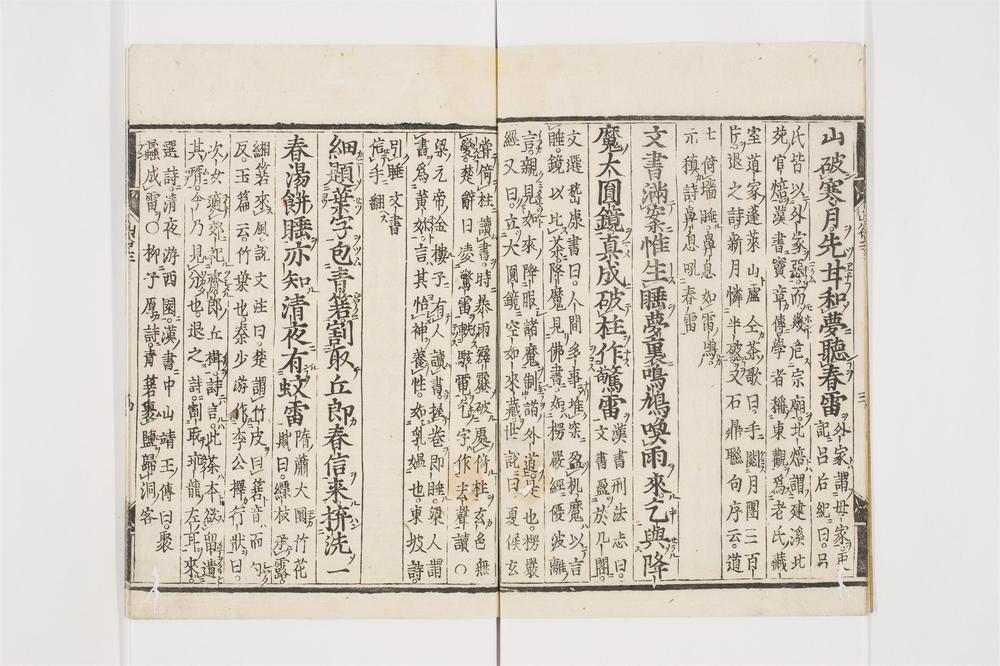 山破寒月先甘和夢聽春雷 外家謂母家更
記呂后紀曰呂
氏皆以外家惡而幾危宗廟北焙謂建溪北
苑官焙漢書竇章傳學者稱東觀爲老氏藏
室道家蓬萊山盧仝茶歌曰手閱月團三百
片退之詩新月憐半破又石鼎聯句序云道
士倚墻睡鼻息如雷鳴
示頛詩鼻息吼春雷
文書滿案惟生睡夢裏鳴鳩喚雨來乞與降
魔大圓鏡真成破柱作驚雷 漢書刑法志曰
文書盈於几閣
文選嵇康書曰人間多事堆案盈机魔以言
睡鏡以比茶降魔見佛書如楞嚴經優波離
言親見如來降服諸魔制諸外道是也楞嚴
經又曰立大圓鏡空如來藏世說曰夏侯玄
嘗倚柱讀書時暴雨霹靂破處倚柱玄色無
變楚辭曰凌驚雷軼駭電乞字作去聲讀〇
梁元帝金樓子有人讀書握卷即睡梁人謂
書爲黄妳言其怡神養性如乳媼也東坡詩
引睡文書
信手翻
細題葉字包青箬割取丘郎春信來拚洗一
春湯餅睡亦知清夜有蚊雷 隋蕭大圜竹花
賦曰縹枝承露
緗箬來風説文注曰楚謂竹皮曰箬音而勺
反玉篇云竹葉也秦少游作李公擇行狀曰
其壻今乃見分也退之詩割取玡龍左耳來
選詩清夜游西園漢書中山靖王傳曰聚
蟁成雷〇柳子厚詩青箬裹鹽歸洞客